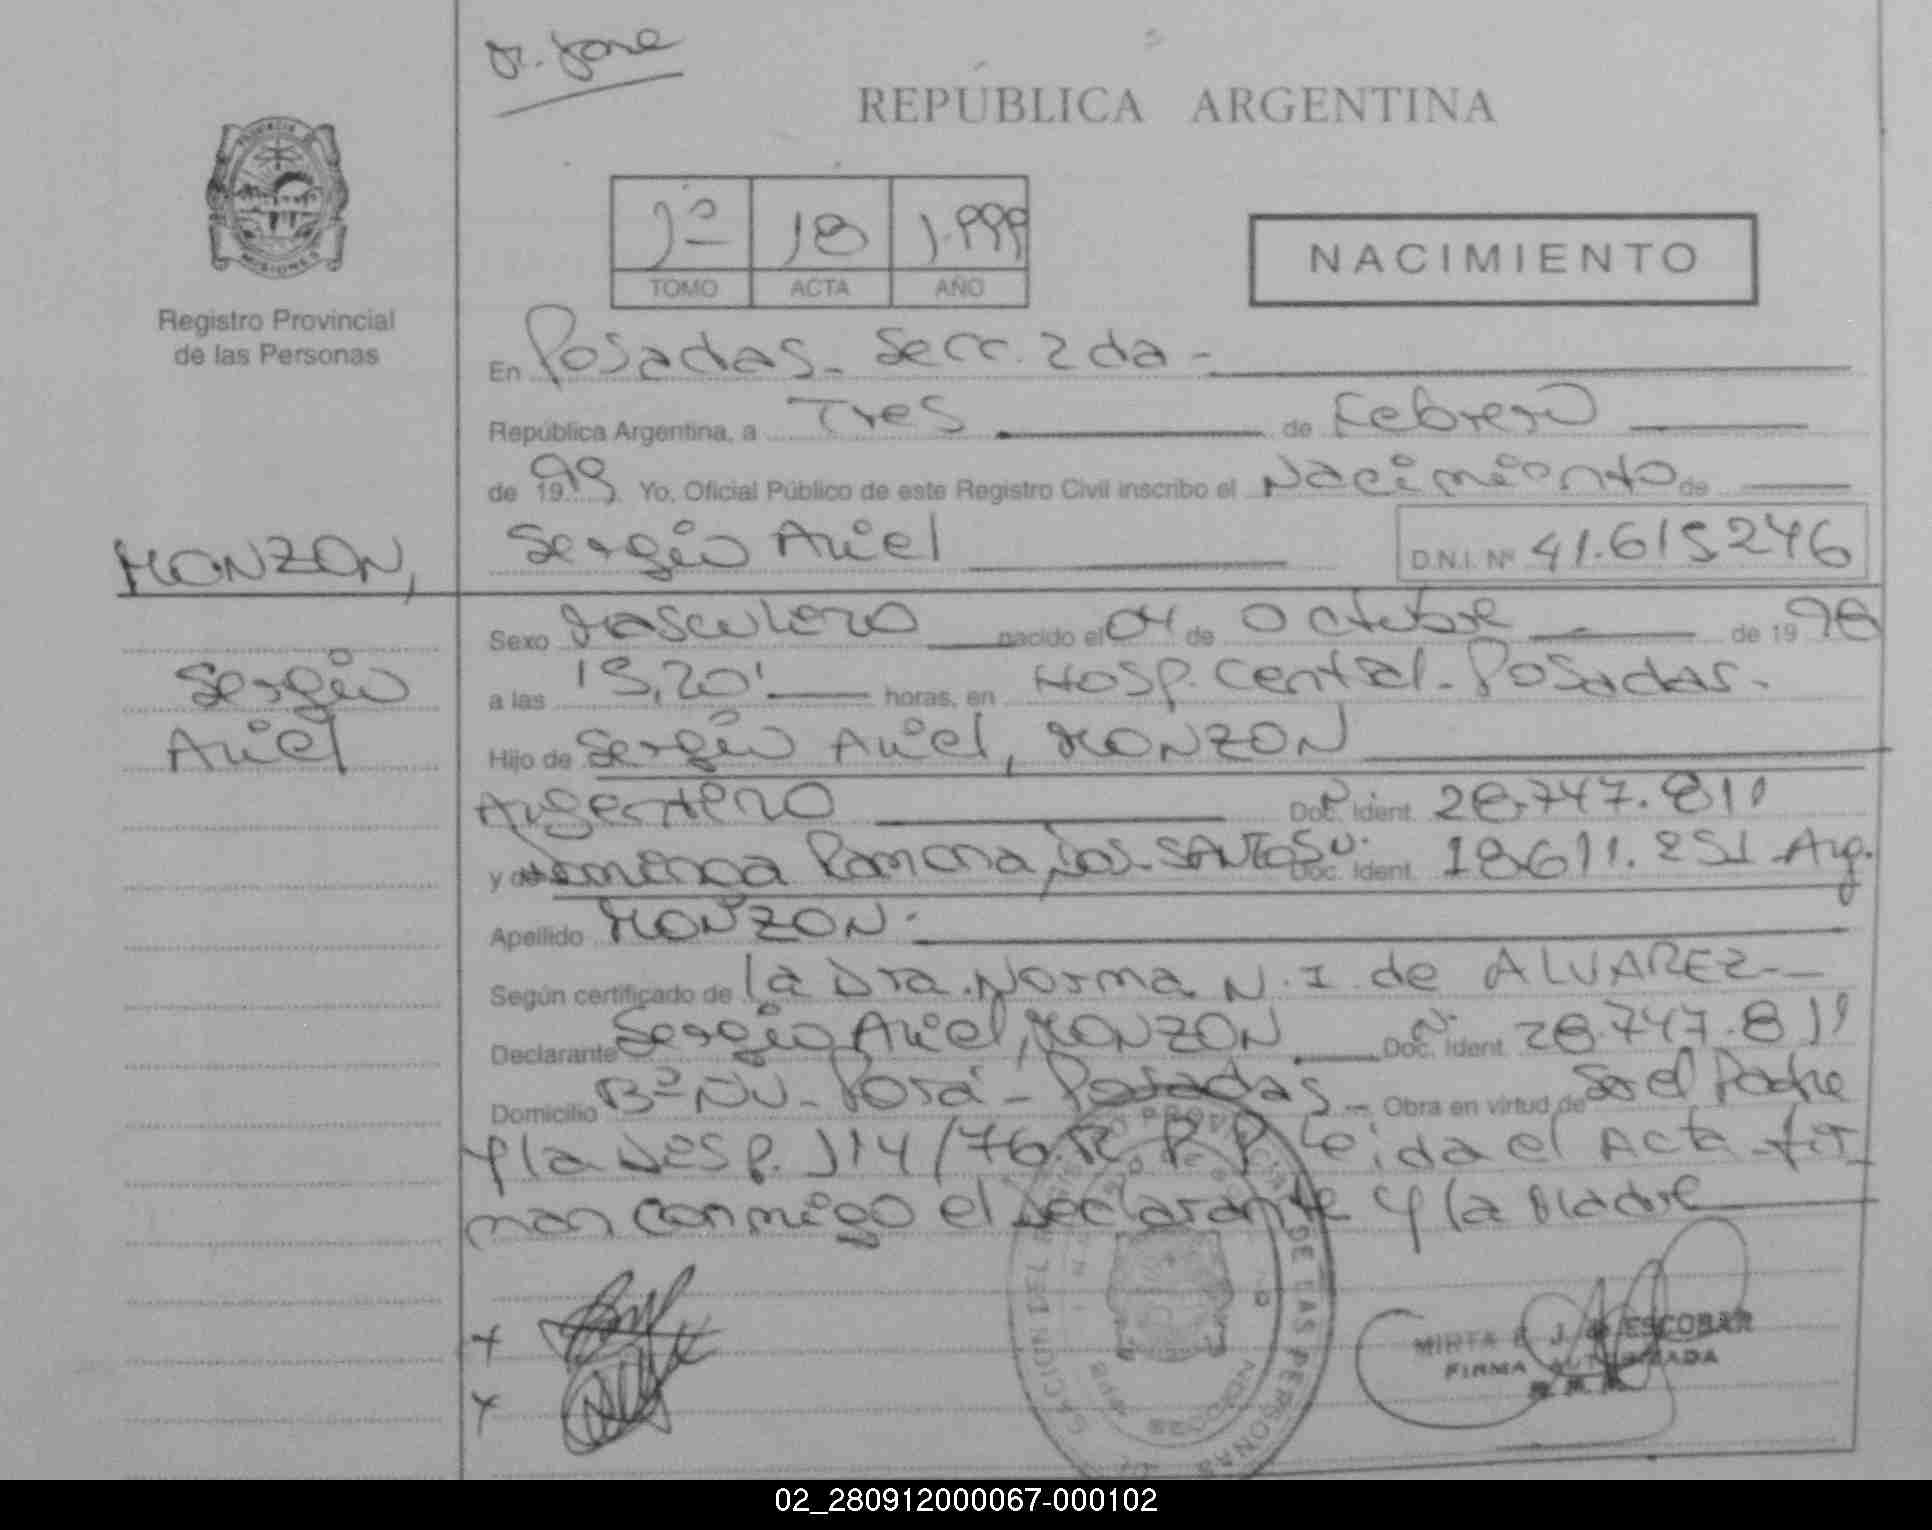 REPÚBLICA ARGENTINA
PROVINCIA
MISIONES
Registro Provincial
de las Personas
1º 18 1.999
TOMO ACTA AÑO
NACIMIENTO
En Posadas - Secc. 2da -
República Argentina, a Tres de Febrero
de 1999 Yo, Oficial Público de este Registro Civil inscribo el Nacimiento de
MONZON, Sergio Ariel D.N.I. Nº 41.615.246
Sexo Masculino nacido el 04 de Octubre de 1998
Sergio a las 15,20' horas, en Hosp. Central - Posadas -
Ariel Hijo de Sergio Ariel, MONZON
Argentino Doc. Ident. 28.747.811
y de Ramona, DOS SANTOS Doc. Ident. 18.611.251 Arg.
Apellido MONZON.
Según certificado de la Dra. Norma N. I. de ALVAREZ
Declarante Sergio Ariel, MONZON Doc. Ident. 28.747.811
Domicilio Bº - Posadas - Obra en virtud de Ser el Padre
y la Desp. 114/76. R. P. P. Leida el Acta fir
man conmigo el Declarante y la Madre
DE LAS PERSONAS
MIRTA E. J. de ESCOBAR
FIRMA AUTORIZADA
02_280912000067-000102